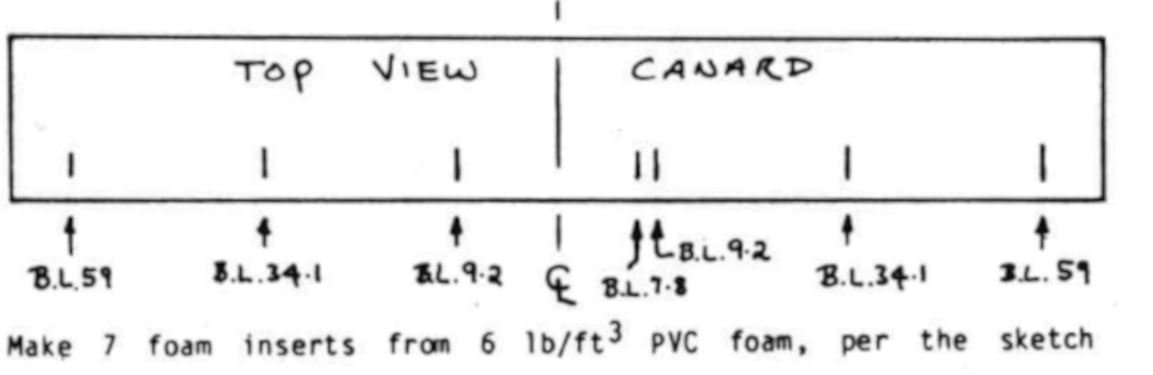 TOP VIEW CANARD
B.L.59 B.L.34.1 B.L.9.2 ℄ B.L.7.8 B.L.9.2 B.L.34.1 B.L.59
Make 7 foam inserts from 6 lb/ft³ PVC foam, per the sketch